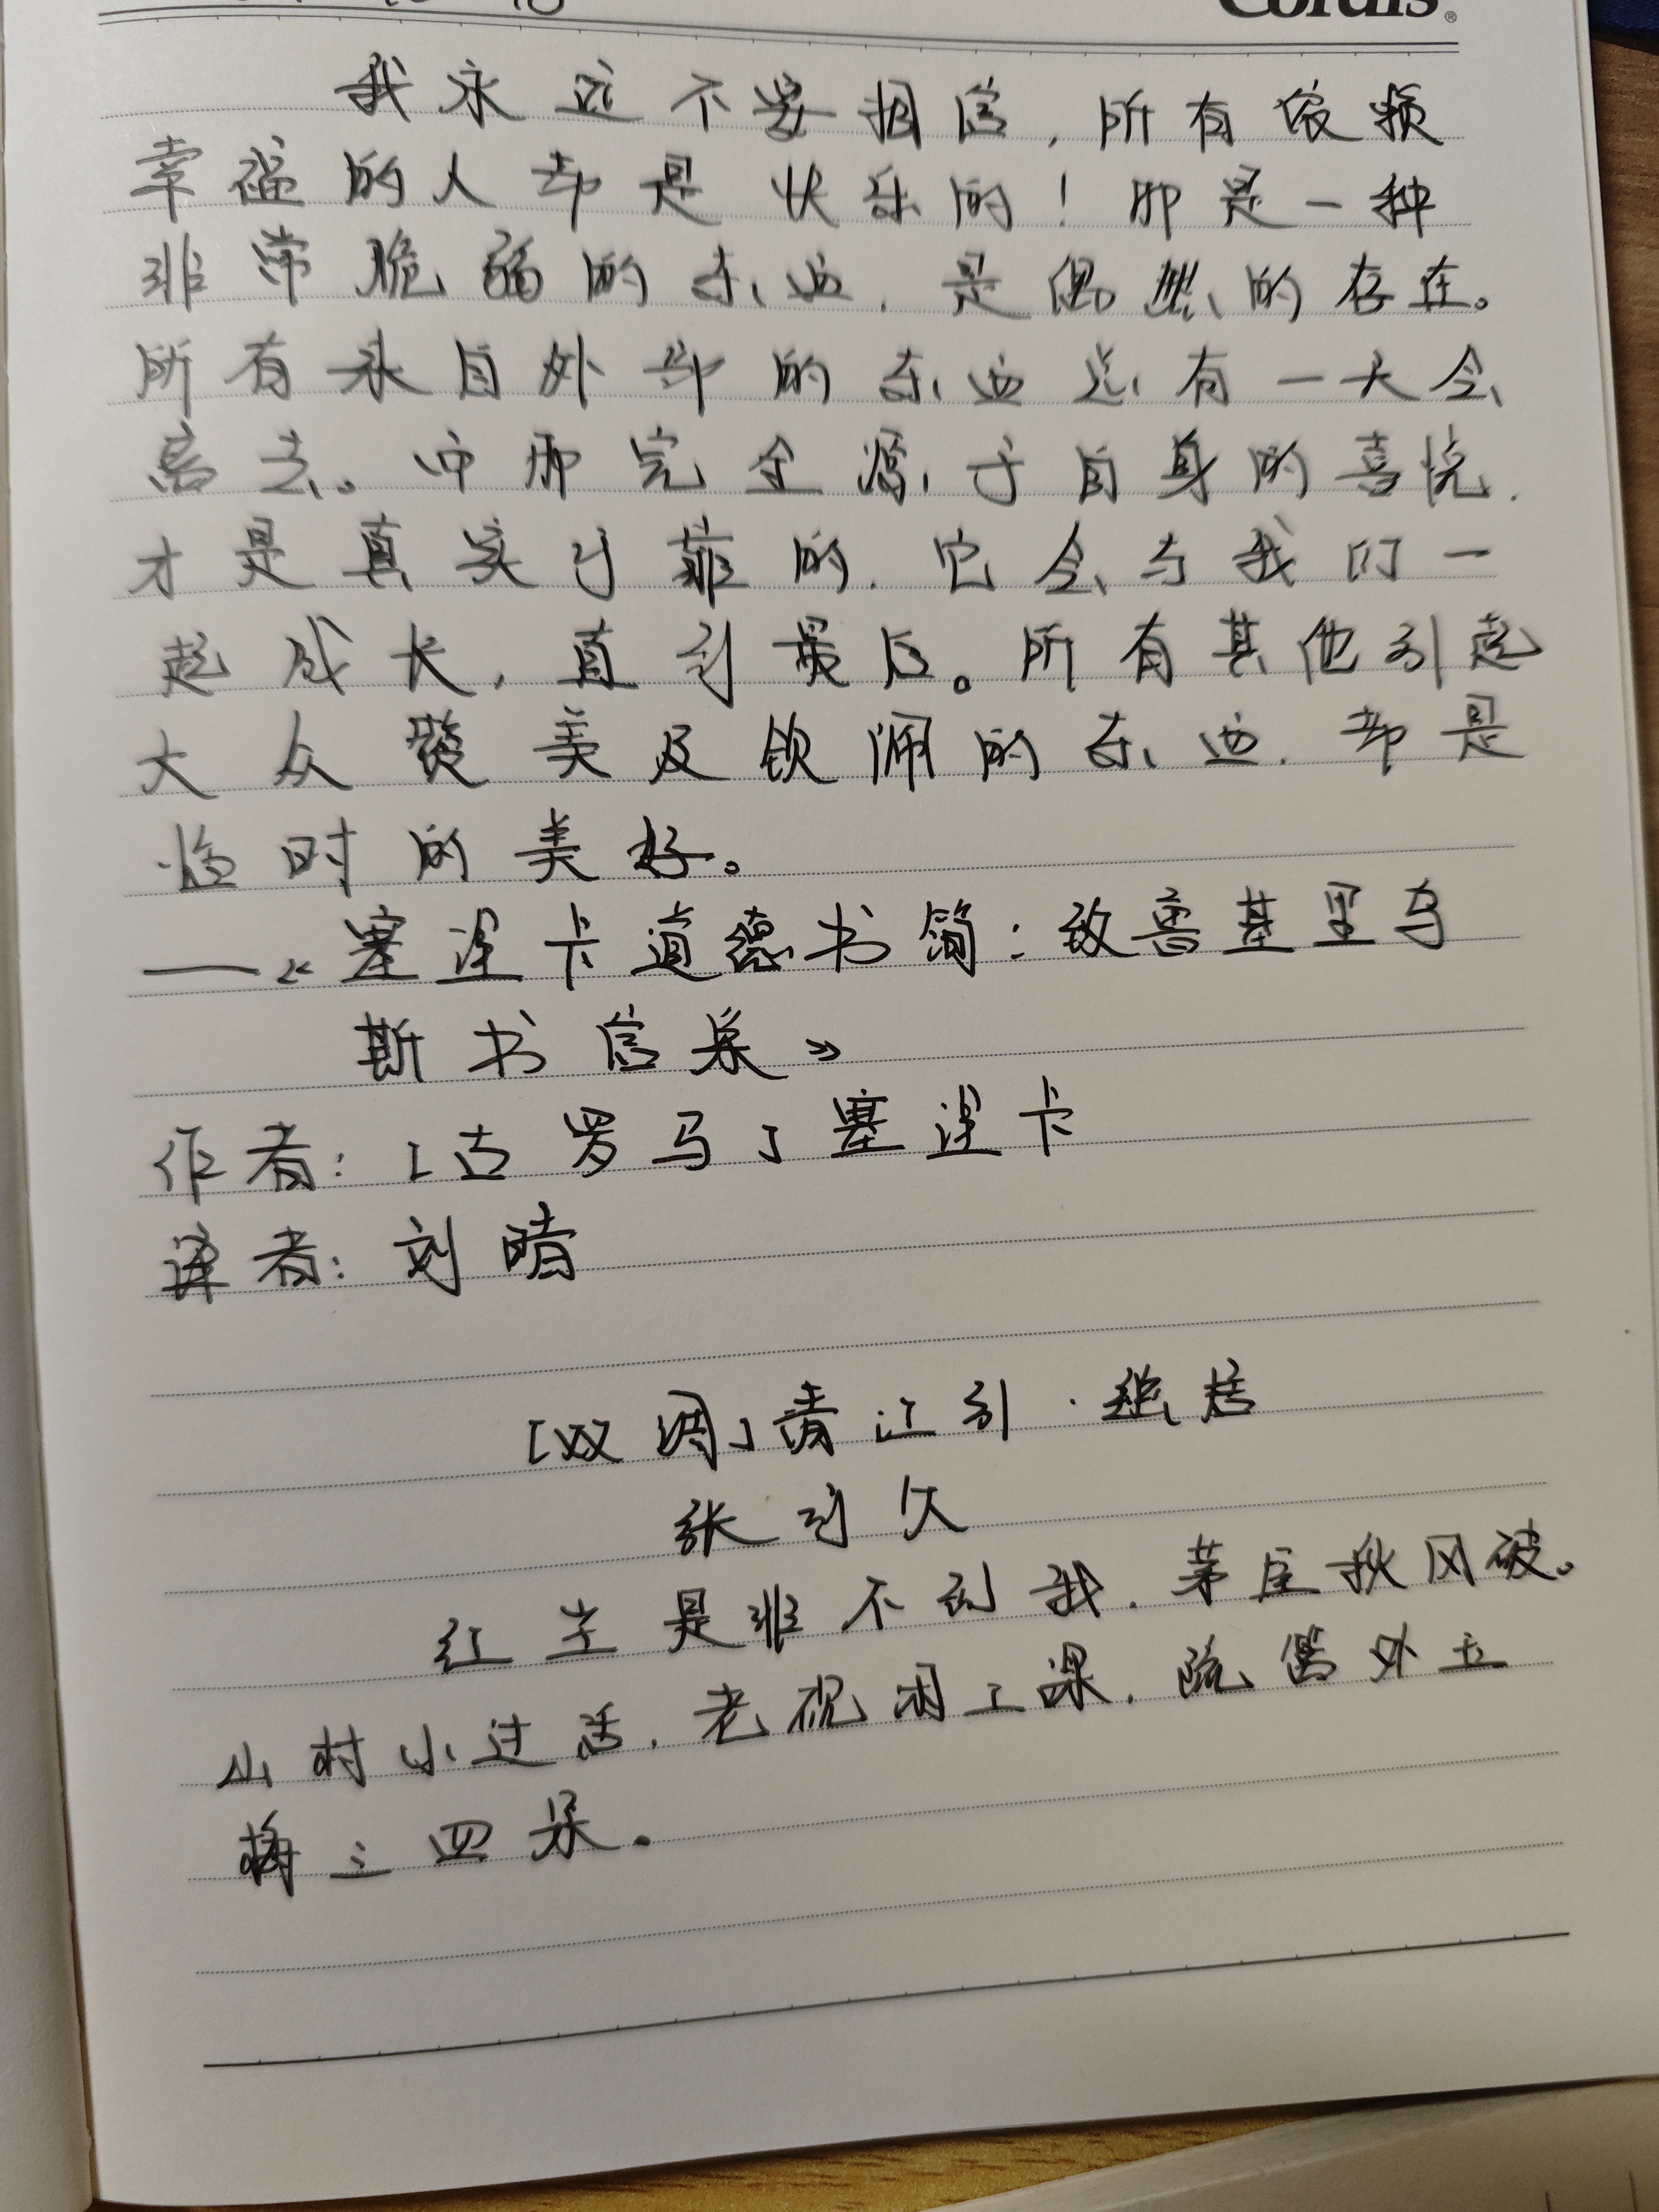 Cordis®
我永远不要相信，所有依赖
幸福的人都是快乐的！那是一种
非常脆弱的东西，是偶然的存在。
所有来自外部的东西总有一天会
离去。而那完全源于自身的喜悦，
才是真实可靠的，它会与我们一
起成长，直到最后。所有其他引起
大众赞美及钦佩的东西，都是
临时的美好。
——《塞涅卡道德书简：致鲁基里乌
斯书信集》
作者：[古罗马]塞涅卡
译者：刘晴
[双调]清江引·幽居
张可久
红尘是非不到我，茅屋秋风破。
山村小过活，老砚闲工课，疏篱外玉
梅三四朵。